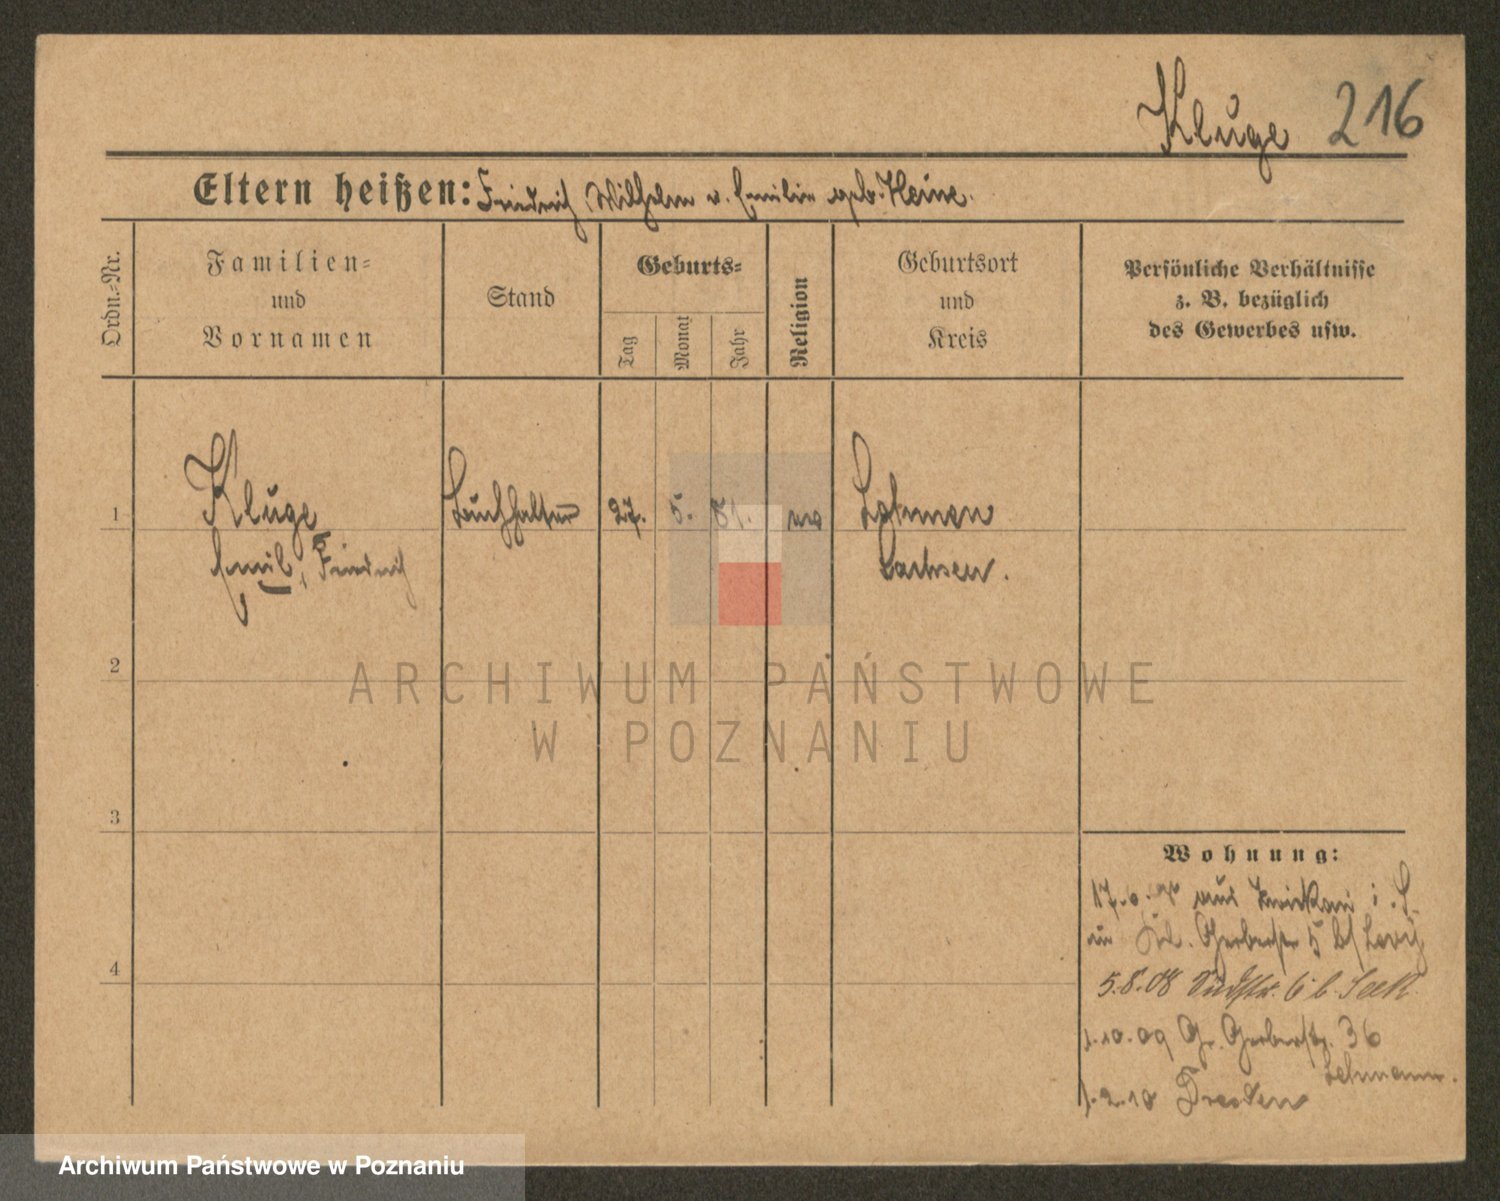 Kluge 216
Eltern heißen: Friedrich Wilhelm u. Emilie geb. Heine.
Ordn.-Nr.
Familien-
und
Vornamen
Stand
Geburts-
Tag
Monat
Jahr
Religion
Geburtsort
und
Kreis
Persönliche Verhältnisse
z. B. bezüglich
des Gewerbes usw.
1
Kluge
Emil, Friedrich
Buchhalter
27. 5. 81.
Sachsen.
2
ARCHIWUM PAŃSTWOWE
W POZNANIU
3
4
Wohnung:
17. 6. aus Zwickau i. S.
Gerberstr 5 b/ Levy
5.8.08 Südstr. 6 b.
1.10.09 Gr. Gerberstr. 36
Lehmann.
1.2.10 Dresden
Archiwum Państwowe w Poznaniu